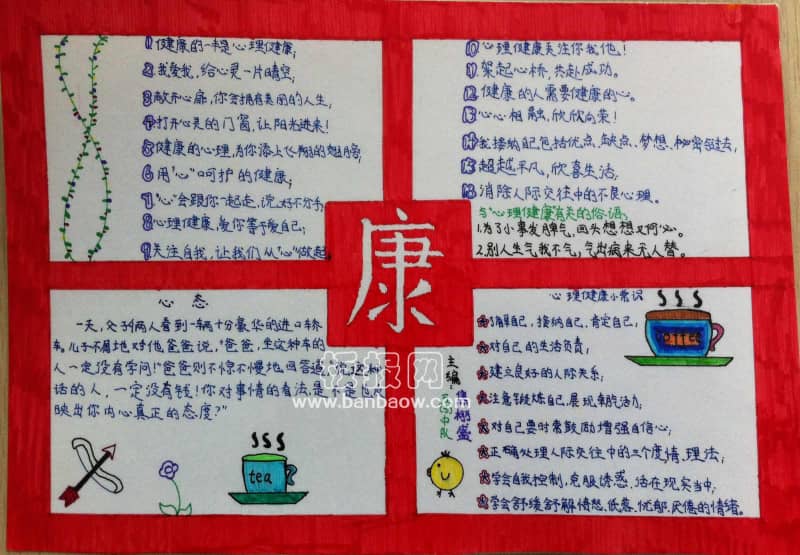 1 健康的一半是心理健康;
2 我爱我,给心灵一片晴空;
3 敞开心扉,你会拥有美丽的人生;
4 打开心灵的门窗,让阳光进来!
5 健康的心理,为你添上飞翔的翅膀;
6 用“心”呵护的健康;
7 “心”会跟你一起走,说好不分手;
8 心理健康,爱你等于爱自己;
9 关注自我,让我们从“心”做起。
10 心理健康关注你我他!
11 架起心桥,共赴成功。
12 健康的人需要健康的心。
13 心心相融,欣欣向荣!
14 我接纳自己包括优点、缺点、梦想、和过去,
15 超越平凡,欣喜生活;
16 消除人际交往中的不良心理。
与“心理健康”有关的俗语:
1.为了小事发脾气,回头想想又何必。
2.别人生气我不气,气出病来无人替。
康
心态
一天,父子俩人看到一辆十分豪华的进口轿
车。儿子不屑地对他爸爸说,“爸爸,坐这种车的
人一定没有学问!”爸爸则不慌不慢地回答道:“说这种
话的人,一定没有钱!你对事情的看法,是不是也反
映出你内心真正的态度?”
tea
心理健康小常识
了解自己,接纳自己,肯定自己,
对自己的生活负责,
建立良好的人际关系;
注意锻炼自己,展现朝气活力;
对自己要时常鼓励增强自信心;
正确处理人际交往中的三个度情、理、法;
学会自我控制,克服诱惑,活在现实当中;
学会舒缓舒解愤怒、低落、忧郁、厌倦的情绪。
主编
中队
板报网
www.banbaow.com